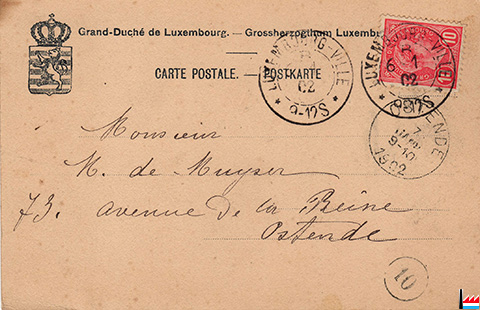 Grand-Duché de Luxembourg. — Grossherzogthum Luxemb
CARTE POSTALE. — POSTKARTE
LUXEMBOURG-VILLE
02
9-12S
LUXEMBOURG-VILLE
6 1
02
9-12S
10
OSTENDE
7
JANV
9-10
1902
Monsieur
M. de Muyser
73. avenue de la Reine
Ostende
10